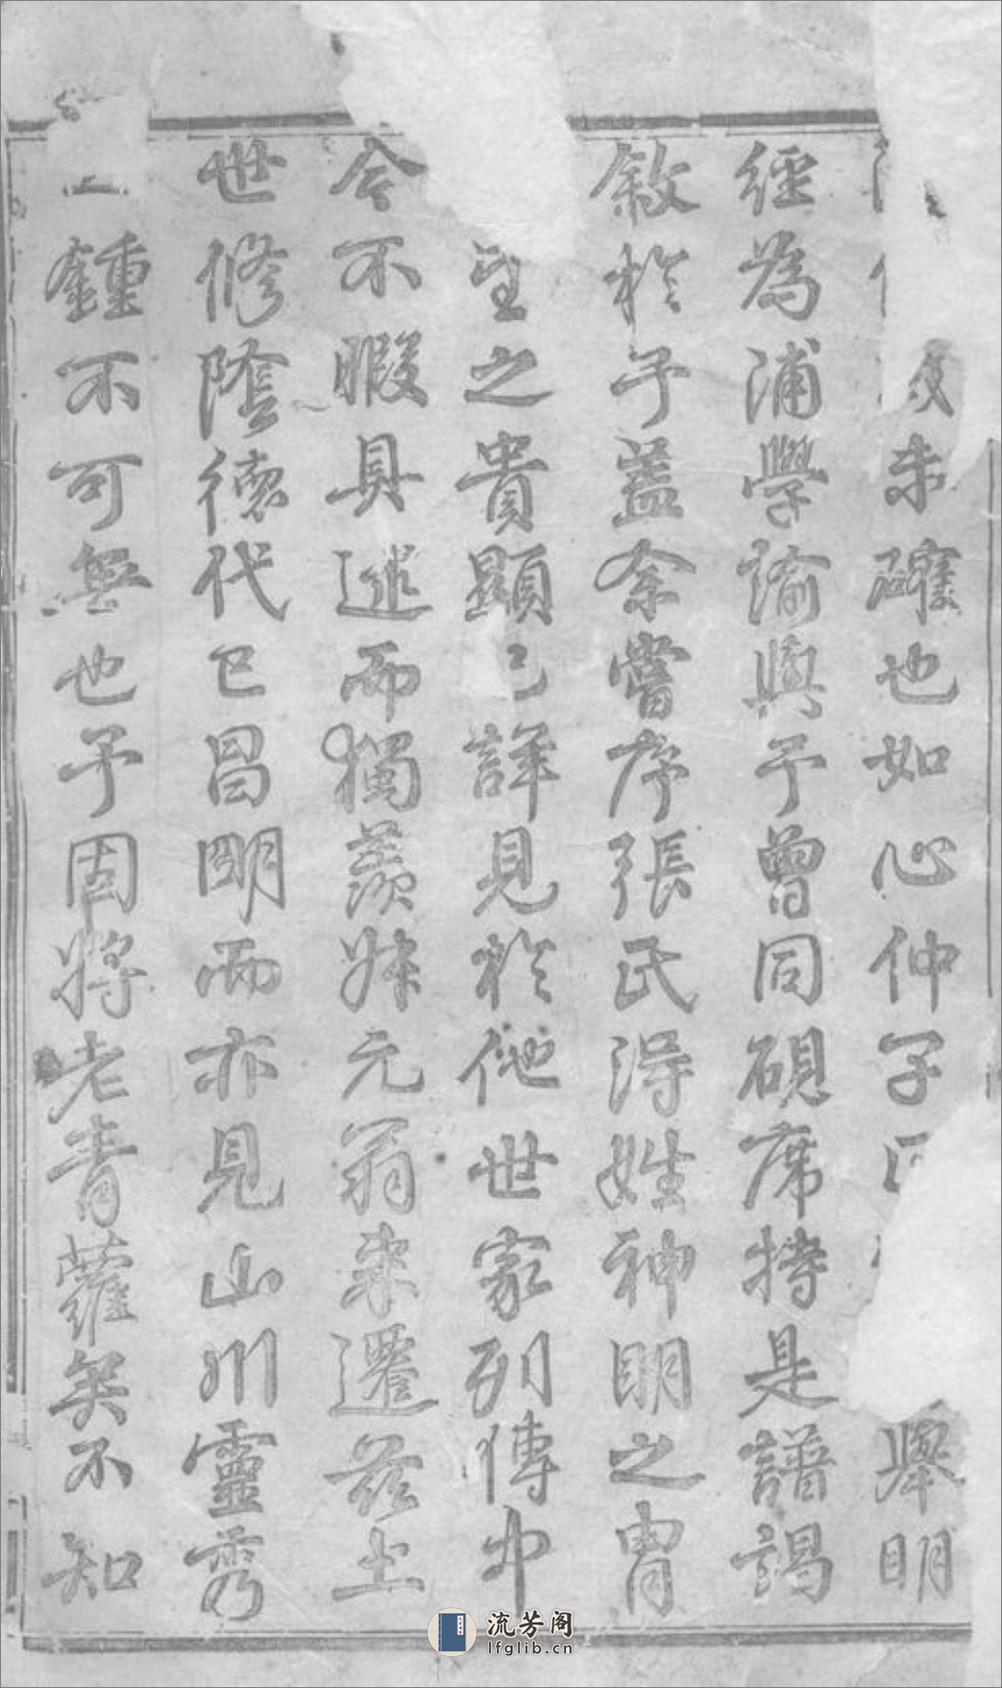 未確也如心仲子舉明
經為浦學諭與予曾同硯席持是譜謁
敘於予蓋余嘗序張氏得姓神明之胄
望之貴顯已詳見於他世家列傳中
今不暇具述而獨羨妹元翁來遷茲土
世修陰德代已昌明而亦見山川靈秀
鍾不可無也予固將老青蘿矣不知
流芳阁
lfglib.cn